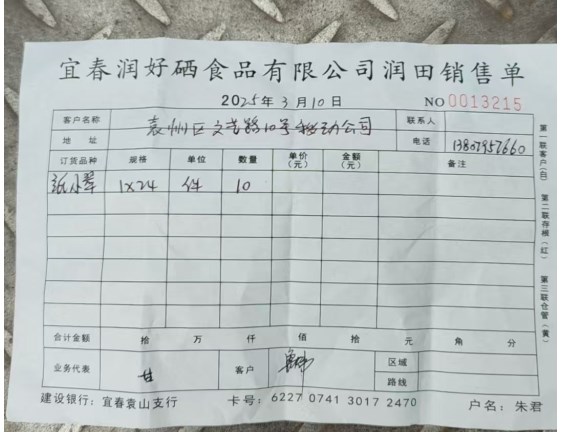 宜春润好硒食品有限公司润田销售单
2025年 3月10日 NO 0013215
客户名称 袁州区文艺路10号移动公司 联系人
地址 电话 13807957660
订货品种 规格 单位 数量 单价(元) 金额(元) 备注
纸小翠 1×24 件 10
合计金额 拾 万 仟 佰 拾 元 角 分
业务代表 甘 客户 区域
路线
建设银行：宜春袁山支行 卡号：6227 0741 3017 2470 户名：朱君
第一联客户(白)
第二联存根(红)
第三联仓管(黄)